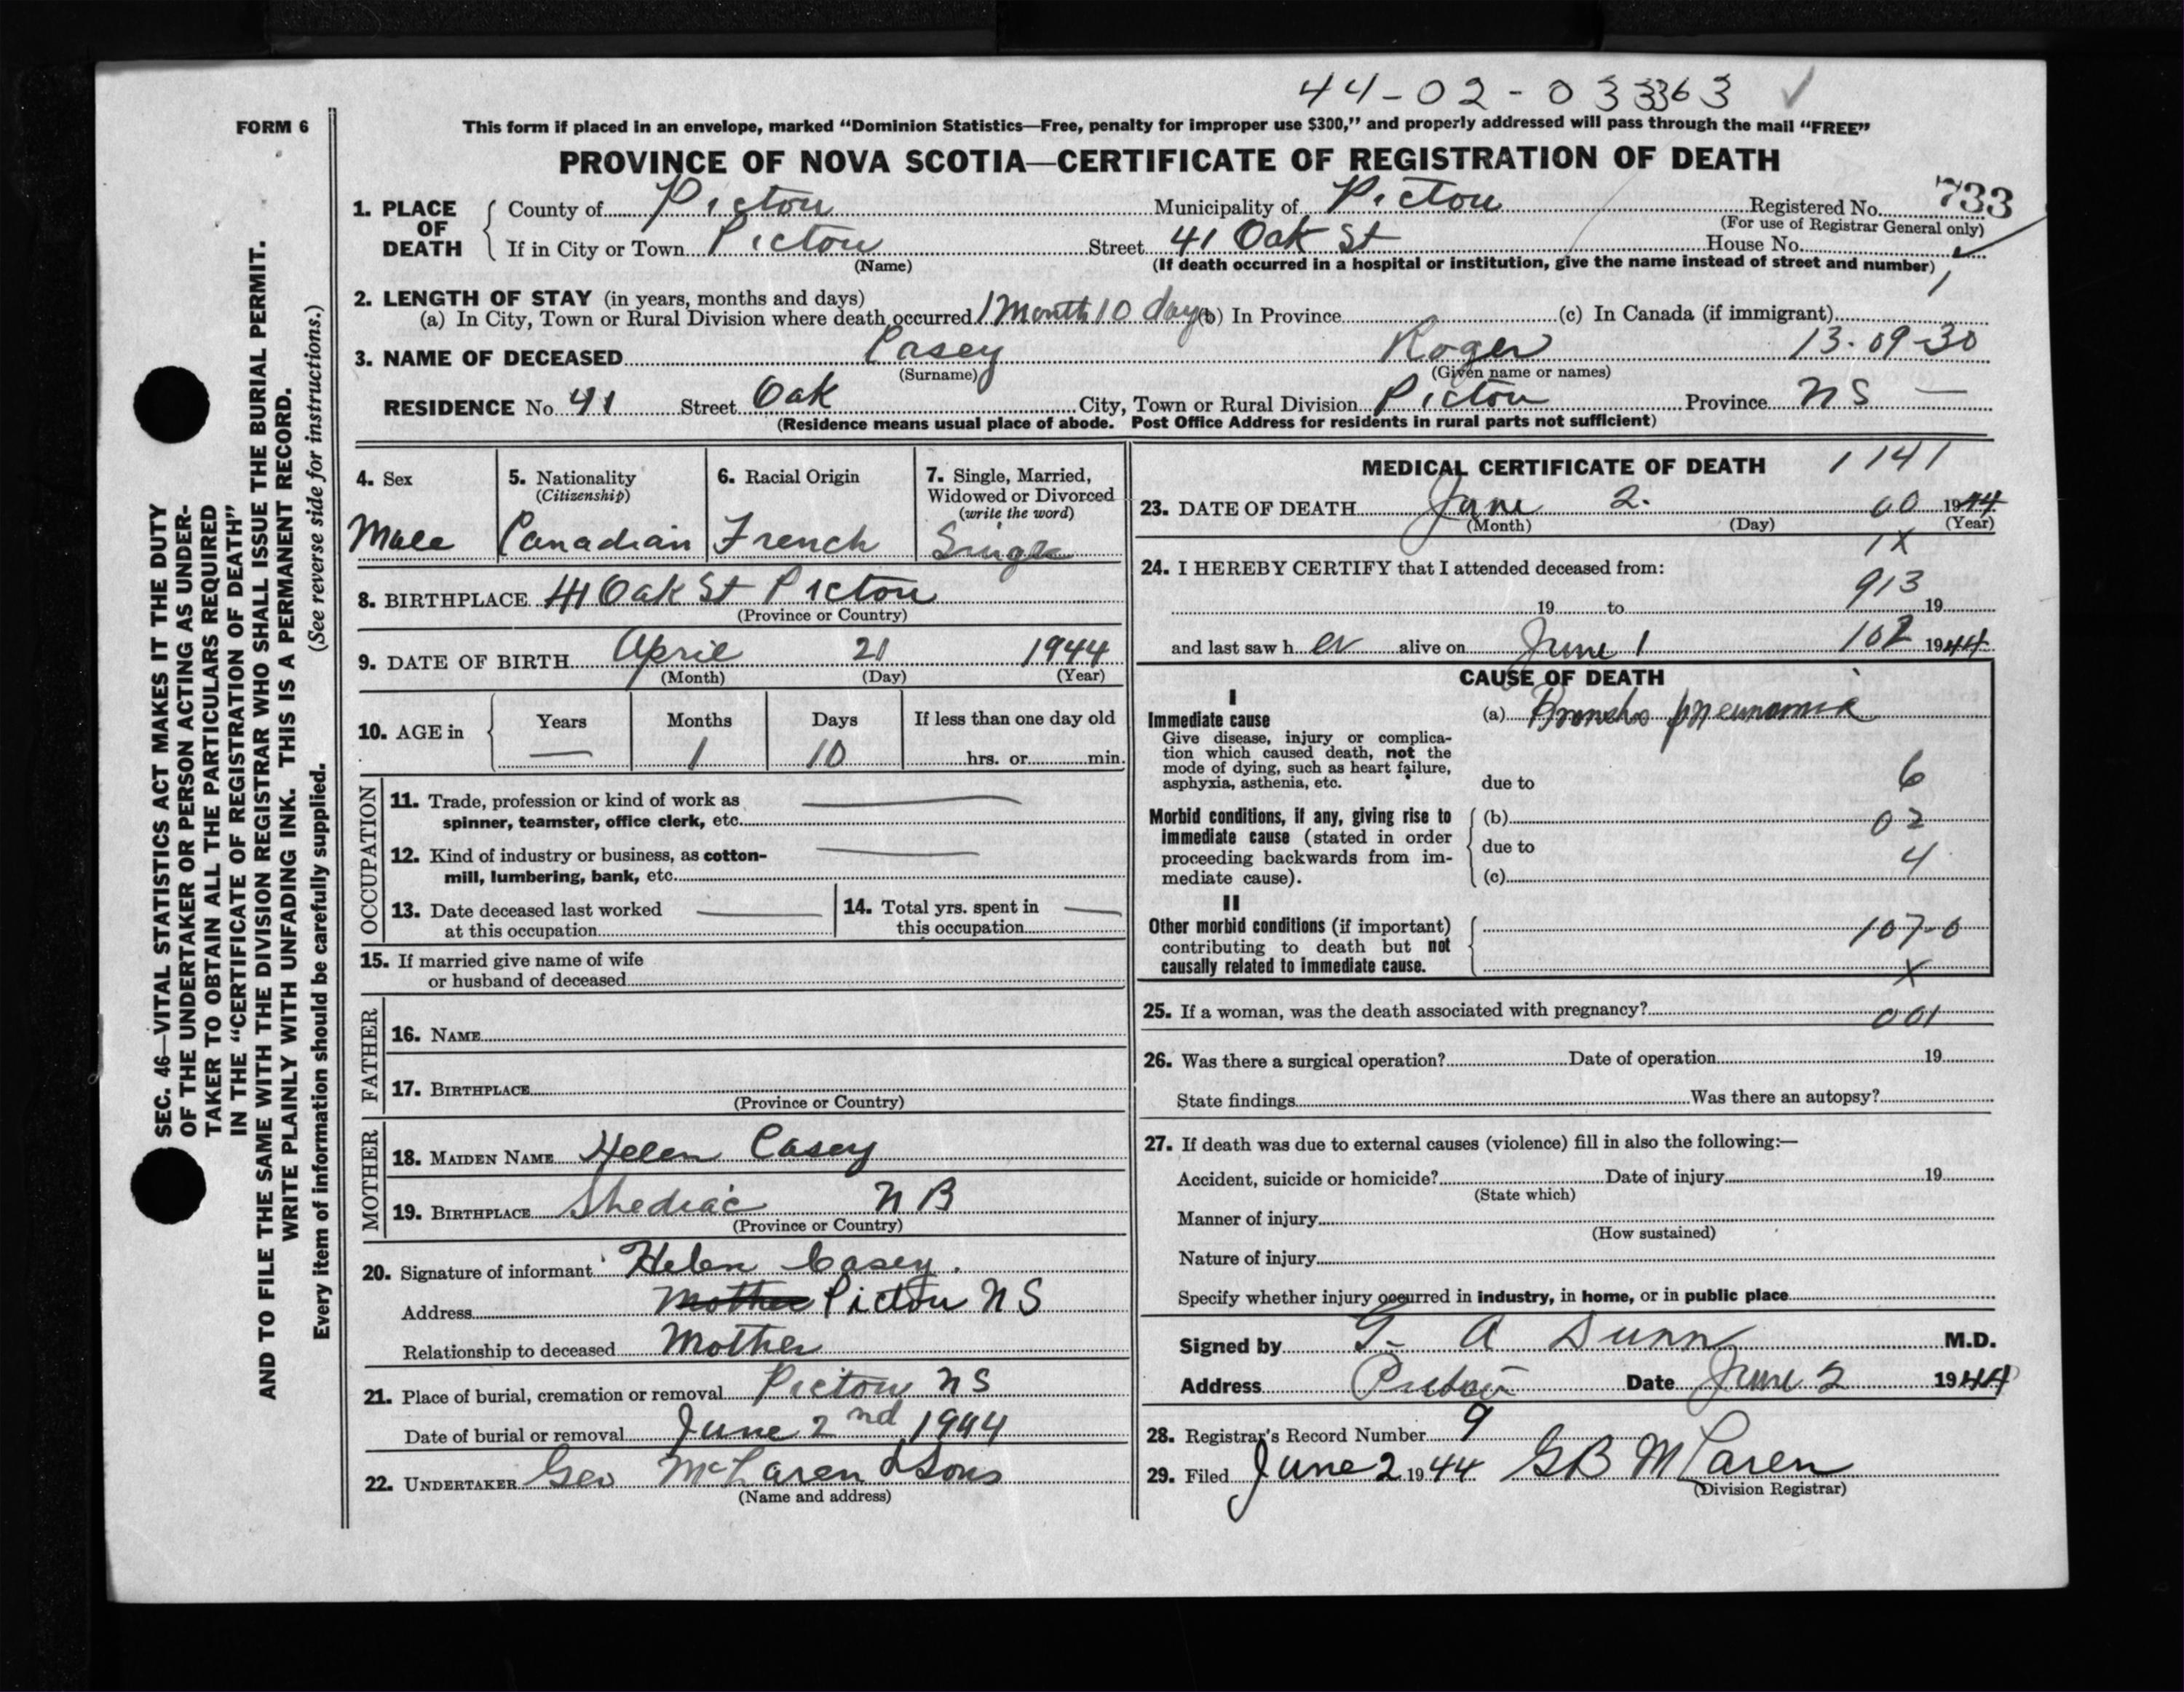 44-02-033363 ✓
FORM 6
This form if placed in an envelope, marked "Dominion Statistics—Free, penalty for improper use $300," and properly addressed will pass through the mail "FREE"
PROVINCE OF NOVA SCOTIA—CERTIFICATE OF REGISTRATION OF DEATH
733
1. PLACE OF DEATH
County of Pictou Municipality of Pictou Registered No.
(For use of Registrar General only)
If in City or Town Pictou Street 41 Oak St House No.
(Name) (If death occurred in a hospital or institution, give the name instead of street and number)
2. LENGTH OF STAY (in years, months and days)
(a) In City, Town or Rural Division where death occurred 1 Month 10 days (b) In Province (c) In Canada (if immigrant)
3. NAME OF DECEASED Casey Roger 13-09-30
(Surname) (Given name or names)
RESIDENCE No. 41 Street Oak City, Town or Rural Division Pictou Province NS —
(Residence means usual place of abode. Post Office Address for residents in rural parts not sufficient)
4. Sex
Male
5. Nationality
(Citizenship)
Canadian
6. Racial Origin
French
7. Single, Married,
Widowed or Divorced
(write the word)
Single
8. BIRTHPLACE 41 Oak St Pictou
(Province or Country)
9. DATE OF BIRTH April 21 1944
(Month) (Day) (Year)
10. AGE in
Years Months Days If less than one day old
— 1 10 hrs. or min.
OCCUPATION
11. Trade, profession or kind of work as
spinner, teamster, office clerk, etc.
12. Kind of industry or business, as cotton-
mill, lumbering, bank, etc.
13. Date deceased last worked
at this occupation
14. Total yrs. spent in
this occupation
15. If married give name of wife
or husband of deceased
FATHER
16. NAME
17. BIRTHPLACE
(Province or Country)
MOTHER
18. MAIDEN NAME Helen Casey
19. BIRTHPLACE Shediac N B
(Province or Country)
20. Signature of informant Helen Casey.
Address Mother Pictou NS
Relationship to deceased Mother
21. Place of burial, cremation or removal Pictou NS
Date of burial or removal June 2nd 1944
22. UNDERTAKER Geo McLaren & Sons
(Name and address)
MEDICAL CERTIFICATE OF DEATH 1141
23. DATE OF DEATH June 2. 60 1944
(Month) (Day) (Year)
1X
24. I HEREBY CERTIFY that I attended deceased from:
913
19 to 19
and last saw h er alive on June 1 102 1944
CAUSE OF DEATH
I
Immediate cause
Give disease, injury or complica-
tion which caused death, not the
mode of dying, such as heart failure,
asphyxia, asthenia, etc.
(a) Broncho pneumonia
due to 6
Morbid conditions, if any, giving rise to
immediate cause (stated in order
proceeding backwards from im-
mediate cause).
(b) 02
due to 4
(c)
II
Other morbid conditions (if important)
contributing to death but not
causally related to immediate cause.
107-0
X
25. If a woman, was the death associated with pregnancy? 001
26. Was there a surgical operation? Date of operation 19
State findings Was there an autopsy?
27. If death was due to external causes (violence) fill in also the following:—
Accident, suicide or homicide? Date of injury 19
(State which)
Manner of injury
(How sustained)
Nature of injury
Specify whether injury occurred in industry, in home, or in public place
Signed by G A Dunn M.D.
Address Pictou Date June 2 1944
28. Registrar's Record Number 9
29. Filed June 2 1944 GB McLaren
(Division Registrar)
SEC. 46—VITAL STATISTICS ACT MAKES IT THE DUTY
OF THE UNDERTAKER OR PERSON ACTING AS UNDER-
TAKER TO OBTAIN ALL THE PARTICULARS REQUIRED
IN THE "CERTIFICATE OF REGISTRATION OF DEATH"
AND TO FILE THE SAME WITH THE DIVISION REGISTRAR WHO SHALL ISSUE THE BURIAL PERMIT.
WRITE PLAINLY WITH UNFADING INK. THIS IS A PERMANENT RECORD.
Every item of information should be carefully supplied. (See reverse side for instructions.)